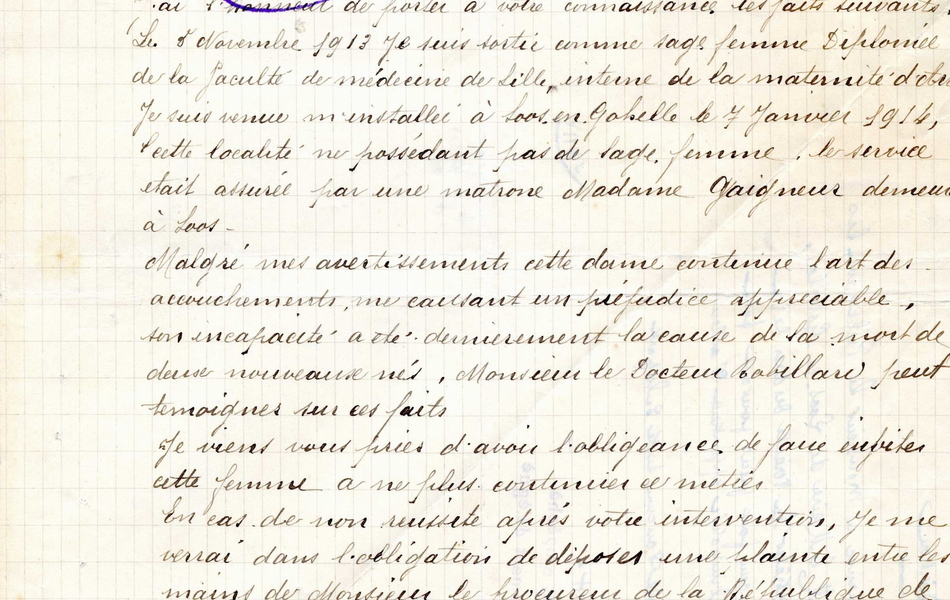 j'ai l'honneur de porter à votre connaissance les faits suivants
Le 8 Novembre 1913 Je suis sortie comme sage femme Diplomée
de la faculté de médecine de Lille, interne de la maternité
Je suis venue m'installée à Loos-en-Gohelle le 7 Janvier 1914,
cette localité ne possédant pas de sage femme, le service
etait assurée par une matrone Madame Gaigneur demeur
à Loos -
Malgré mes avertissements cette dame continue l'art des
accouchements, me causant un préjudice appreciable,
son incapacité a été dernierement la cause de la mort de
deux nouveaux nés, Monsieur le Docteur peut
temoigner sur ces faits
Je viens vous prier d'avoir l'obligeance de faire inviter
cette femme a ne plus continuer ce métier
En cas de non réussite aprés votre intervention, Je me
verrai dans l'obligation de déposer une plainte entre les
mains de Monsieur le procureur de la République de